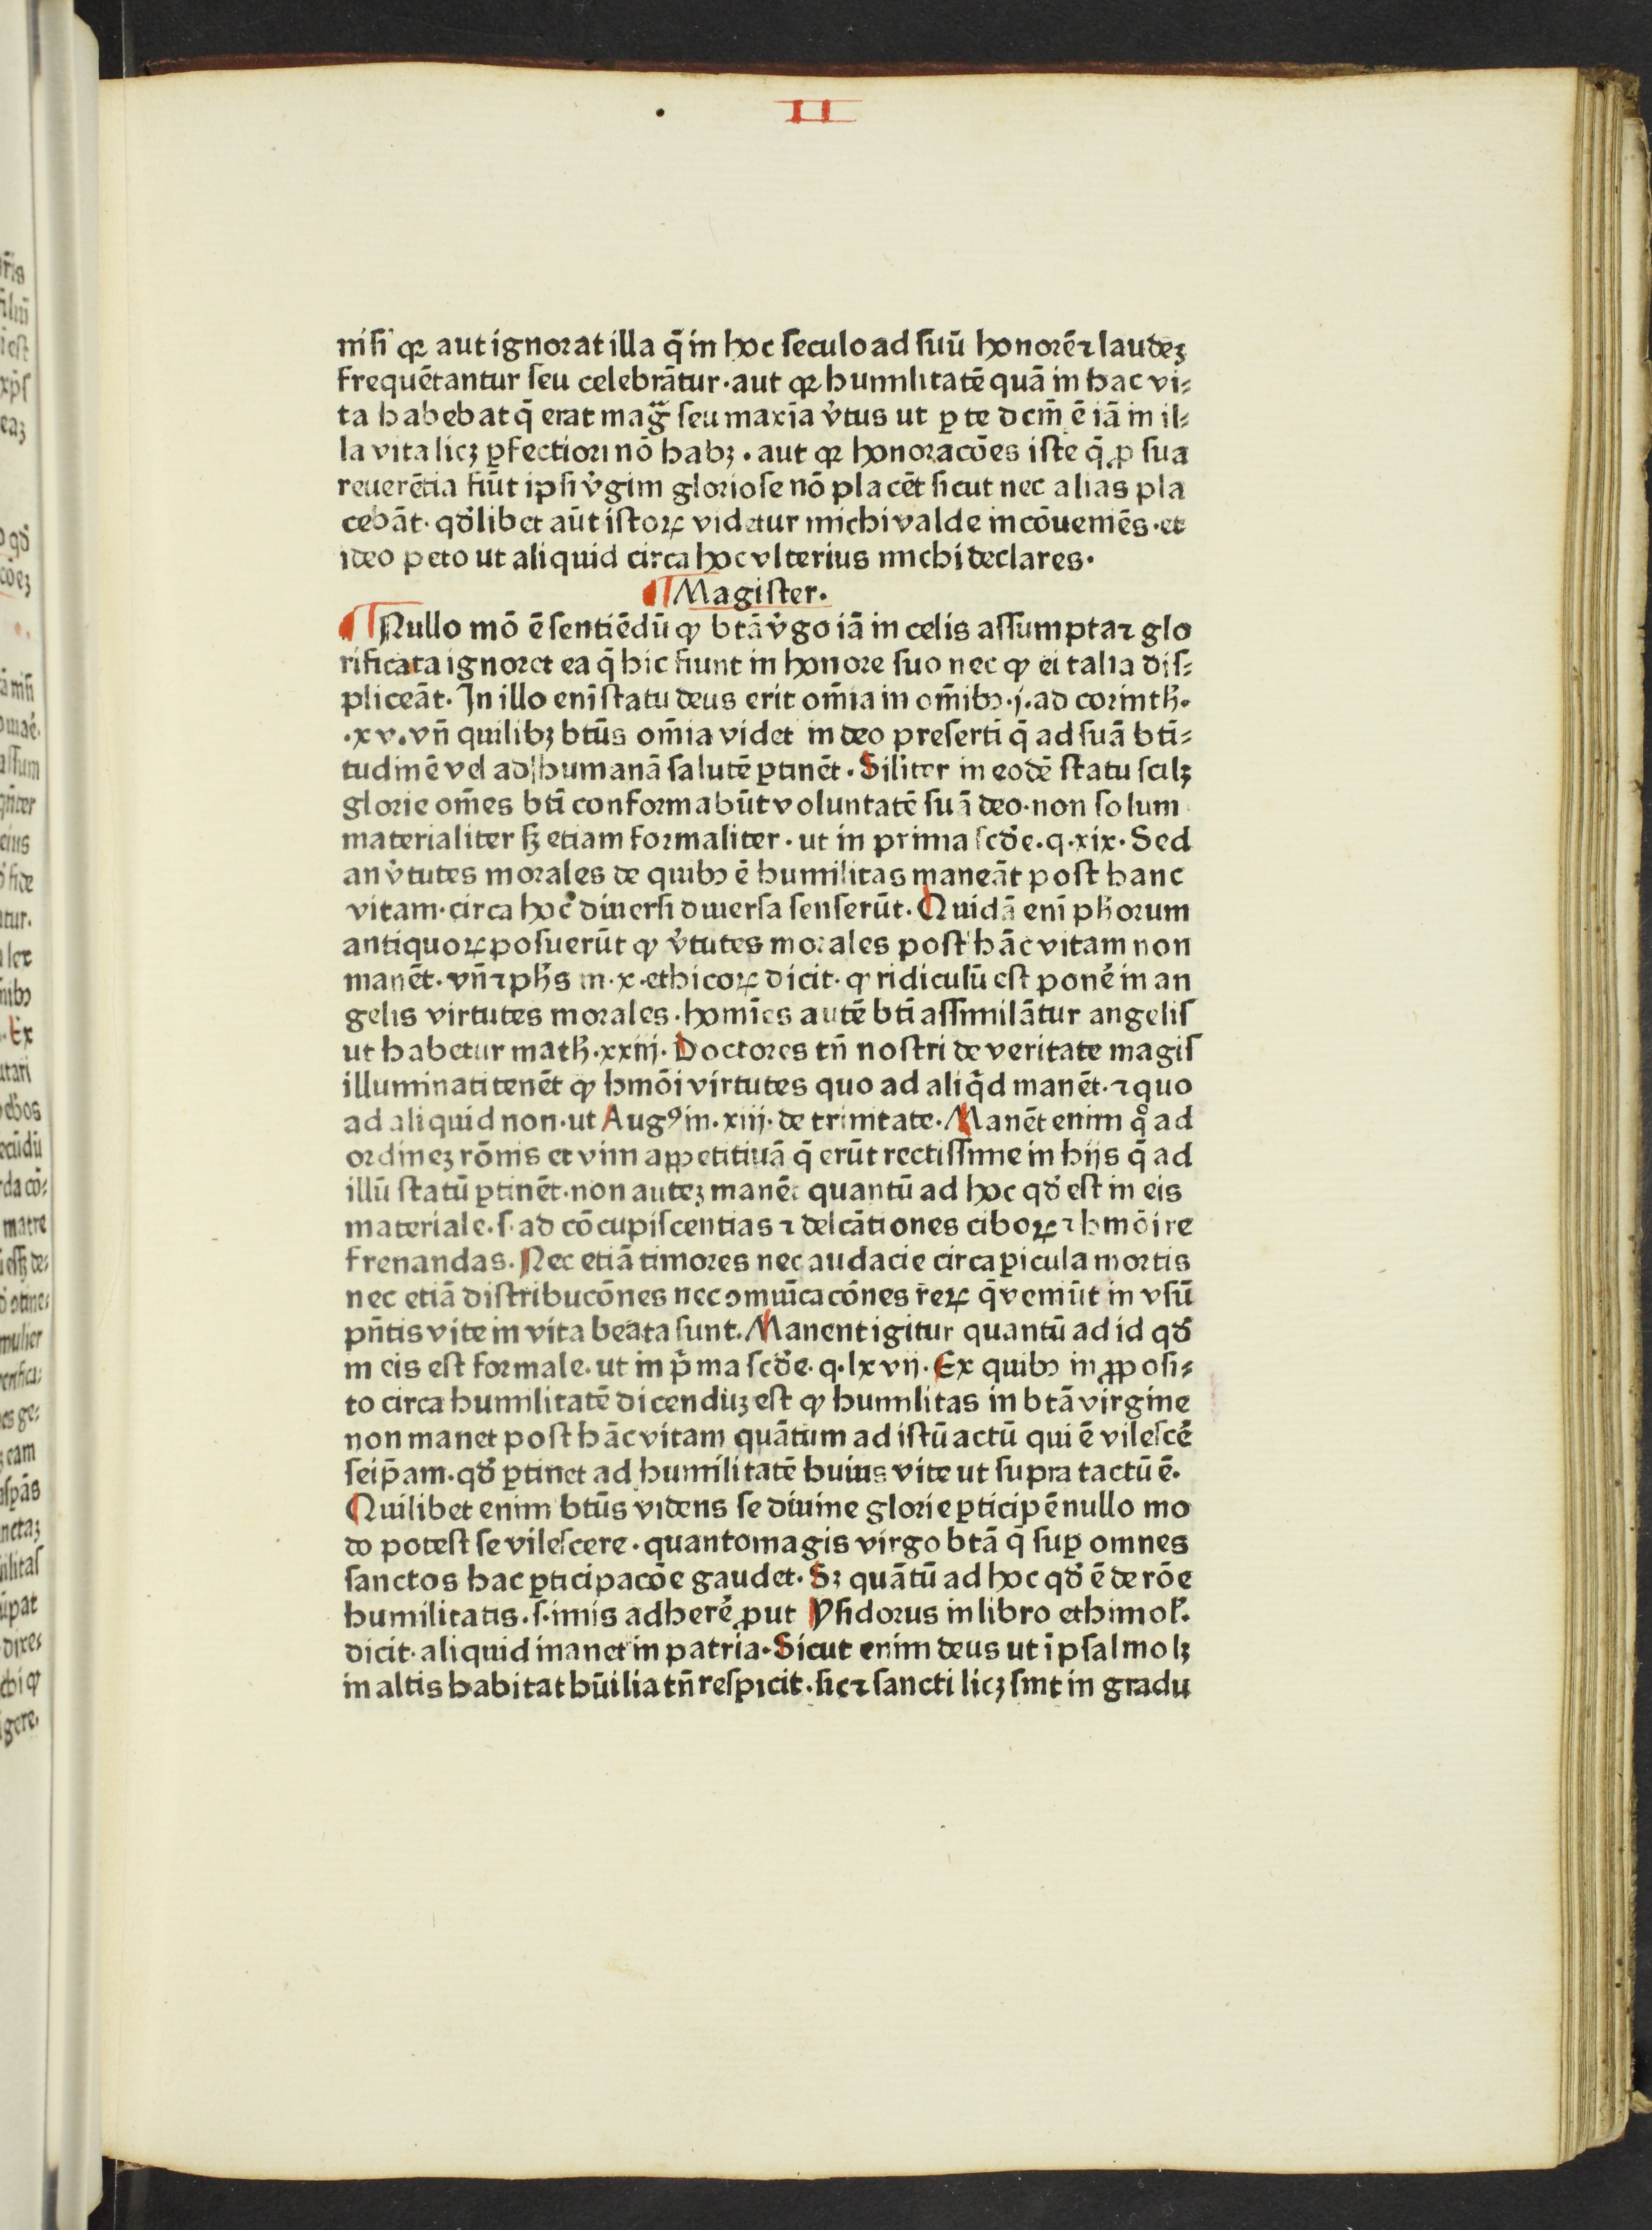 II
nisi qꝛ aut ignorat illa q̄ in hoc seculo ad suū honorē ⁊ laudeꝫ
frequētantur seu celebrātur · aut qꝛ humilitatē quā in hac vi⸗
ta habebat q̄ erat mag̅ seu maxīa v̓tus ut ꝑ te dcm̄ ē iā in il⸗
la vita licꝫ ꝑfectiori nō habꝫ · aut qꝛ honoracōes iste q̄ ꝓ sua
reuerētia fiūt ipsi v̓gini gloriose nō placēt sicut nec alias pla
cebāt · qd̓libet aūt istoꝝ videtur michi valde incōueniēs · et
ideo peto ut aliquid circa hoc vlterius michi declares ·
¶ Magister ·
¶ Nullo mō ē sentiēdū ꝙ btā v̓go iā in celis assumpta ⁊ glo
rificata ignoret ea q̄ hic fiunt in honore suo nec ꝙ ei talia dis⸗
pliceāt · In illo enī statu deus erit om̄ia in om̄ibꝫ · j · ad corinth̄ ·
· xv · vn̄ quilibꝫ btūs om̄ia videt in deo presertī q̄ ad suā bti⸗
tudinē vel ad humanā salutē ꝑtinēt · Siliter in eodē statu scilꝫ
glorie om̄es btī conformabūt voluntatē suā deo · non solum
materialiter sꝫ etiam formaliter · ut in prima scd̓e · q · xix · Sed
an v̓tutes morales de quibꝫ ē humilitas maneāt post hanc
vitam · circa hoc diuersi diuersa senserūt · Quidā enī ph̄orum
antiquoꝝ posuerūt ꝙ v̓tutes morales post hāc vitam non
manēt · vn̄ ⁊ ph̄s in · x · ethicoꝝ dicit · ꝙ ridiculū est ponē in an
gelis virtutes morales · homīes autē btī assimilātur angelis
ut habetur math̄ · xxiij · Doctores tn̄ nostri de veritate magis
illuminati tenēt ꝙ hmōi virtutes quo ad aliq̄d manēt · ⁊ quo
ad aliquid non · ut Augꝰ in · xiij · de trinitate · Manēt enim qͦ ad
ordineꝫ rōnis et vim appetitiuā q̄ erūt rectissime in hijs q̄ ad
illū statū ꝑtinēt · non auteꝫ manēt quantū ad hoc qd̓ est in eis
materiale · s · ad cōcupiscentias ⁊ delcātiones ciboꝝ ⁊ hmōi re
frenandas · Nec etiā timores nec audacie circa ꝑicula mortis
nec etiā distribucōnes nec omuīcacōnes reꝝ q̄ veniūt in vsū
pn̄tis vite in vita beata sunt · Manent igitur quantū ad id qd̓
in eis est formale · ut in p̄ma scd̓e · q · lxvij · Ex quibꝫ in ꝓposi⸗
to circa humilitatē dicenduꝫ est ꝙ humilitas in btā virgine
non manet post hāc vitam quātum ad istū actū qui ē vilescē
seip̄am · qd̓ ꝑtinet ad humilitatē huius vite ut supra tactū ē ·
Quilibet enim btūs videns se diuine glorie ꝑticipē nullo mo
do potest se vilescere · quantomagis virgo btā q̄ suꝑ omnes
sanctos hac ꝑticipacōe gaudet · Sꝫ quātū ad hoc qd̓ ē de rōe
humilitatis · s · imis adherē ꝓut Ysidorus in libro ethimol̄ ·
dicit · aliquid manet in patria · Sicut enim deus ut ī psalmo lꝫ
in altis habitat hūilia tn̄ respicit · sic ⁊ sancti licꝫ sint in gradu